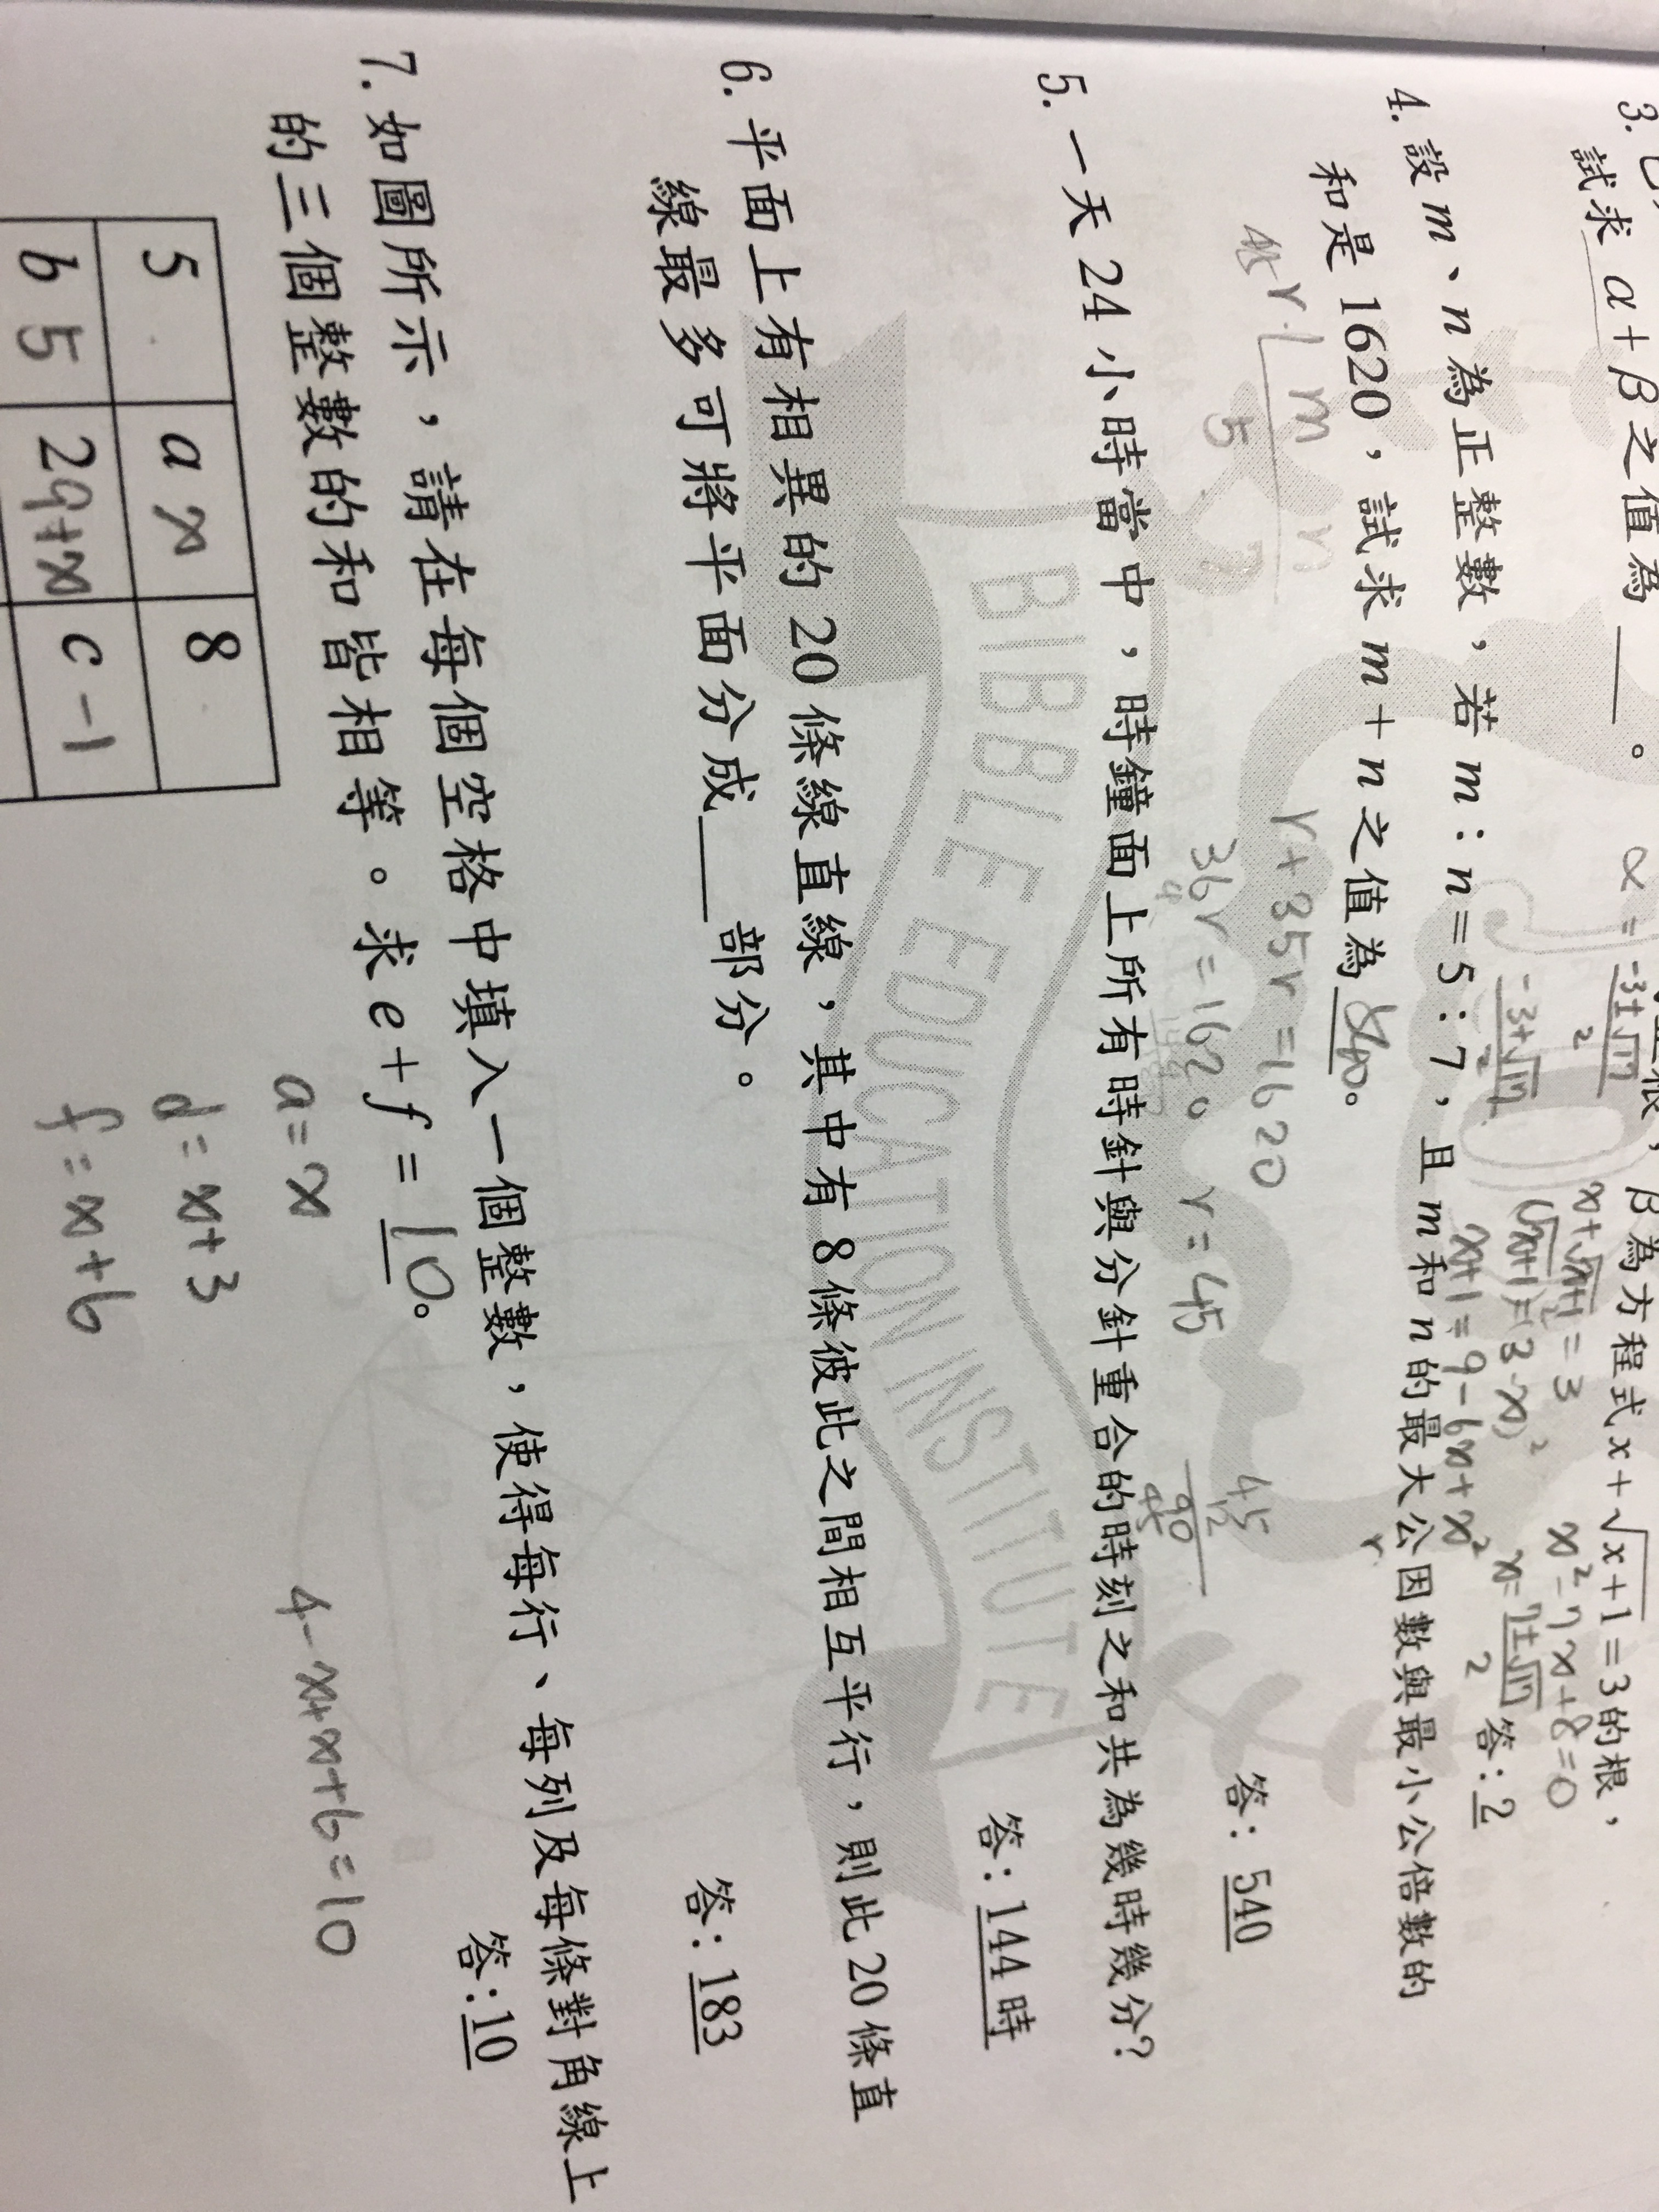 試求 α+β 之值為 ____。
β 為方程式 x+√(x+1)=3 的根,
α = (-3±√17)/2
x+√(x+1) = 3
x²-7x+8=0
x+1 = 9-6x+x²
x = (7±√17)/2
答:2
4. 設 m、n 為正整數,若 m:n=5:7,且 m 和 n 的最大公因數與最小公倍數的
和是 1620,試求 m+n 之值為 540。
r | m n
5 7
r+35r=1620
36r=1620 r=45
45
12
90
45
答:540
5. 一天 24 小時當中,時鐘面上所有時針與分針重合的時刻之和共為幾時幾分?
答:144 時
BIBLE EDUCATION INSTITUTE
6. 平面上有相異的 20 條線直線,其中有 8 條彼此之間相互平行,則此 20 條直
線最多可將平面分成____部分。
答:183
7. 如圖所示,請在每個空格中填入一個整數,使得每行、每列及每條對角線上
的三個整數的和皆相等。求 e+f=10。
答:10
5 a x 8
b 5 29+x c -1
a=x
d=x+3
f=x+6
4-x+x+6=10